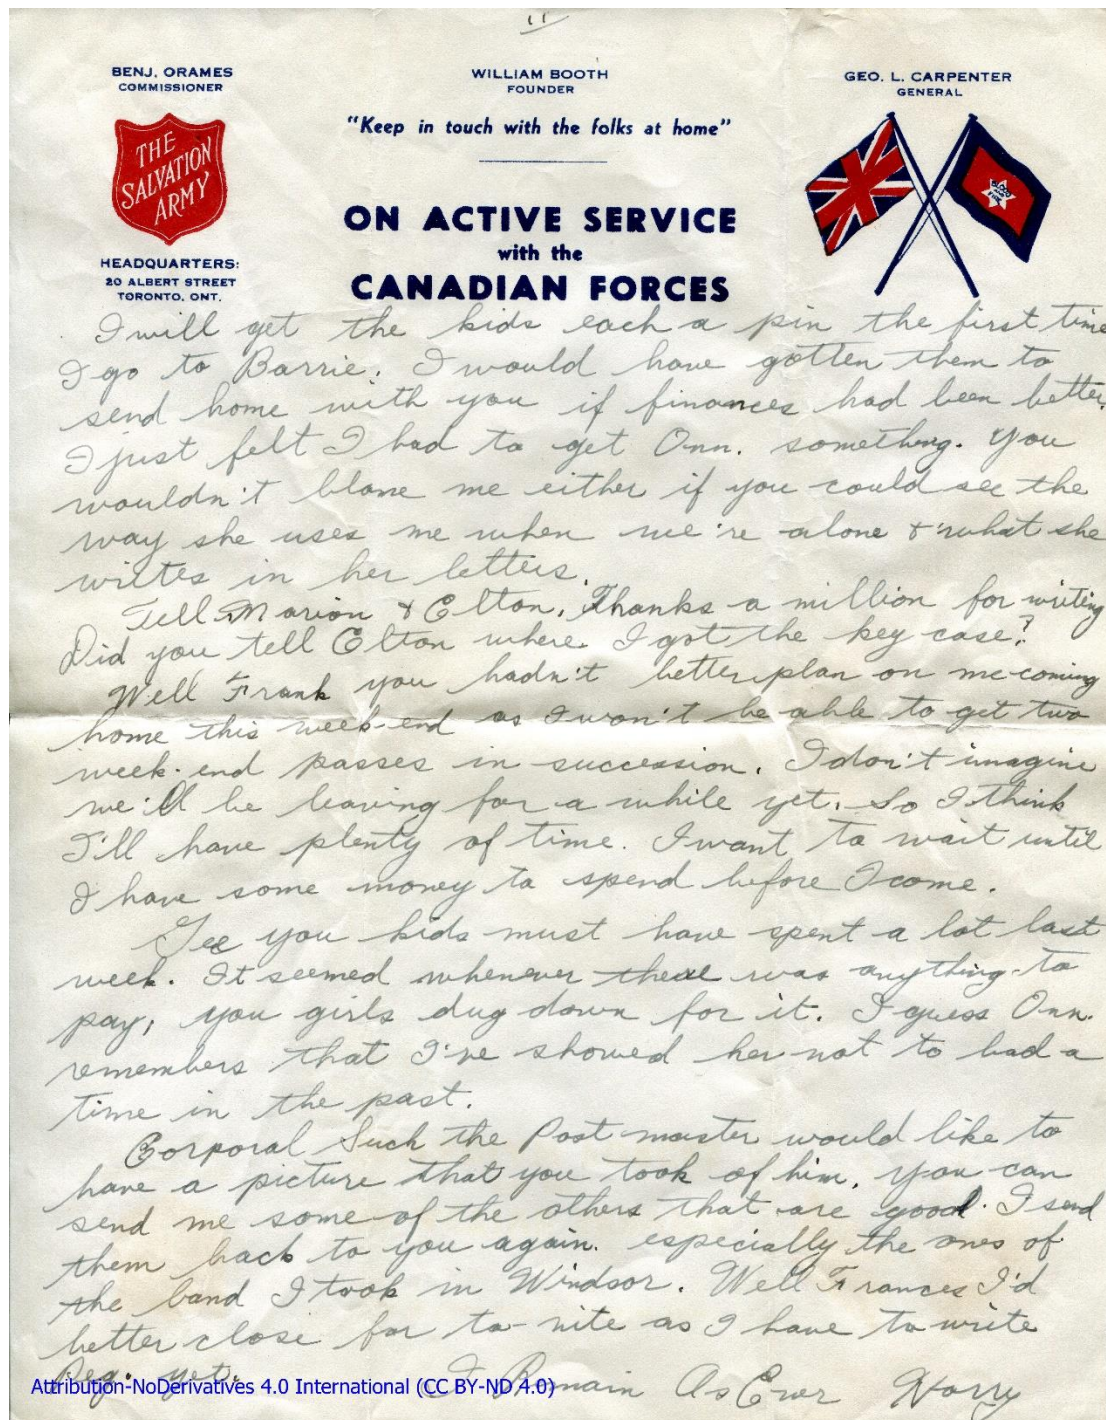 11
BENJ. ORAMES
COMMISSIONER
THE
SALVATION
ARMY
HEADQUARTERS:
20 ALBERT STREET
TORONTO, ONT.
WILLIAM BOOTH
FOUNDER
"Keep in touch with the folks at home"
ON ACTIVE SERVICE
with the
CANADIAN FORCES
GEO. L. CARPENTER
GENERAL
BLOOD
AND
FIRE
I will get the kids each a pin the first time
I go to Barrie. I would have gotten them to
send home with you if finances had been better.
I just felt I had to get Onn. something. You
wouldn't blane me either if you could see the
way she uses me when we're alone & what she
writes in her letters.
Tell Marion & Elton. Thanks a million for writing
Did you tell Elton where I got the key case?
Well Frank you hadn't better plan on me coming
home this week-end as I won't be able to get two
week-end passes in succession. I don't imagine
we'll be leaving for a while yet. So I think
I'll have plenty of time. I want to wait until
I have some money to spend before I come.
Gee you kids must have spent a lot last
week. It seemed whenever there was anything to
pay, you girls dug down for it. I guess Onn.
remembers that I've showed her not to bad a
time in the past.
Corporal Such the Post master would like to
have a picture that you took of him. You can
send me some of the others that are good. I send
them back to you again. especially the ones of
the band I took in Windsor. Well Frances I'd
better close for to-nite as I have to write
Reg. yet. I Remain As Ever Harry
Attribution-NoDerivatives 4.0 International (CC BY-ND 4.0)